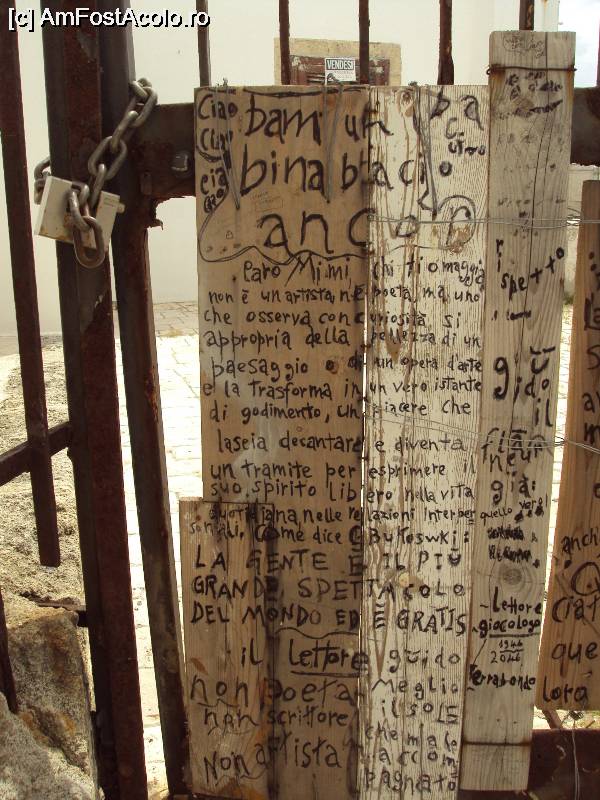 [c] AmFostAcolo.ro
VENDESI
Ciao
bam un
bina braci
ancor
Caro Mimi, chi ti omaggia
non è un artista nè poeta, ma uno
che osserva con curiosità, si
appropria della bellezza di un
paesaggio o di un opera d'arte
e la trasforma in un vero istante
di godimento, un piacere che
lascia decantare e diventa
un tramite per esprimere il
suo spirito libero nella vita
quotidiana, nelle relazioni interper
sonali. Come dice C. Bukowski:
LA GENTE È IL PIÙ
GRANDE SPETTACOLO
DEL MONDO ED È GRATIS
il Lettore guido
non Poeta
non scrittore
Non artista
Meglio
il sole
che mal
accom
pagnato
rispetto
guido
il
flaneur
già:
quello vero!
Lettore
giocologo
1946
2046
Terrabondo
anch
que
loro